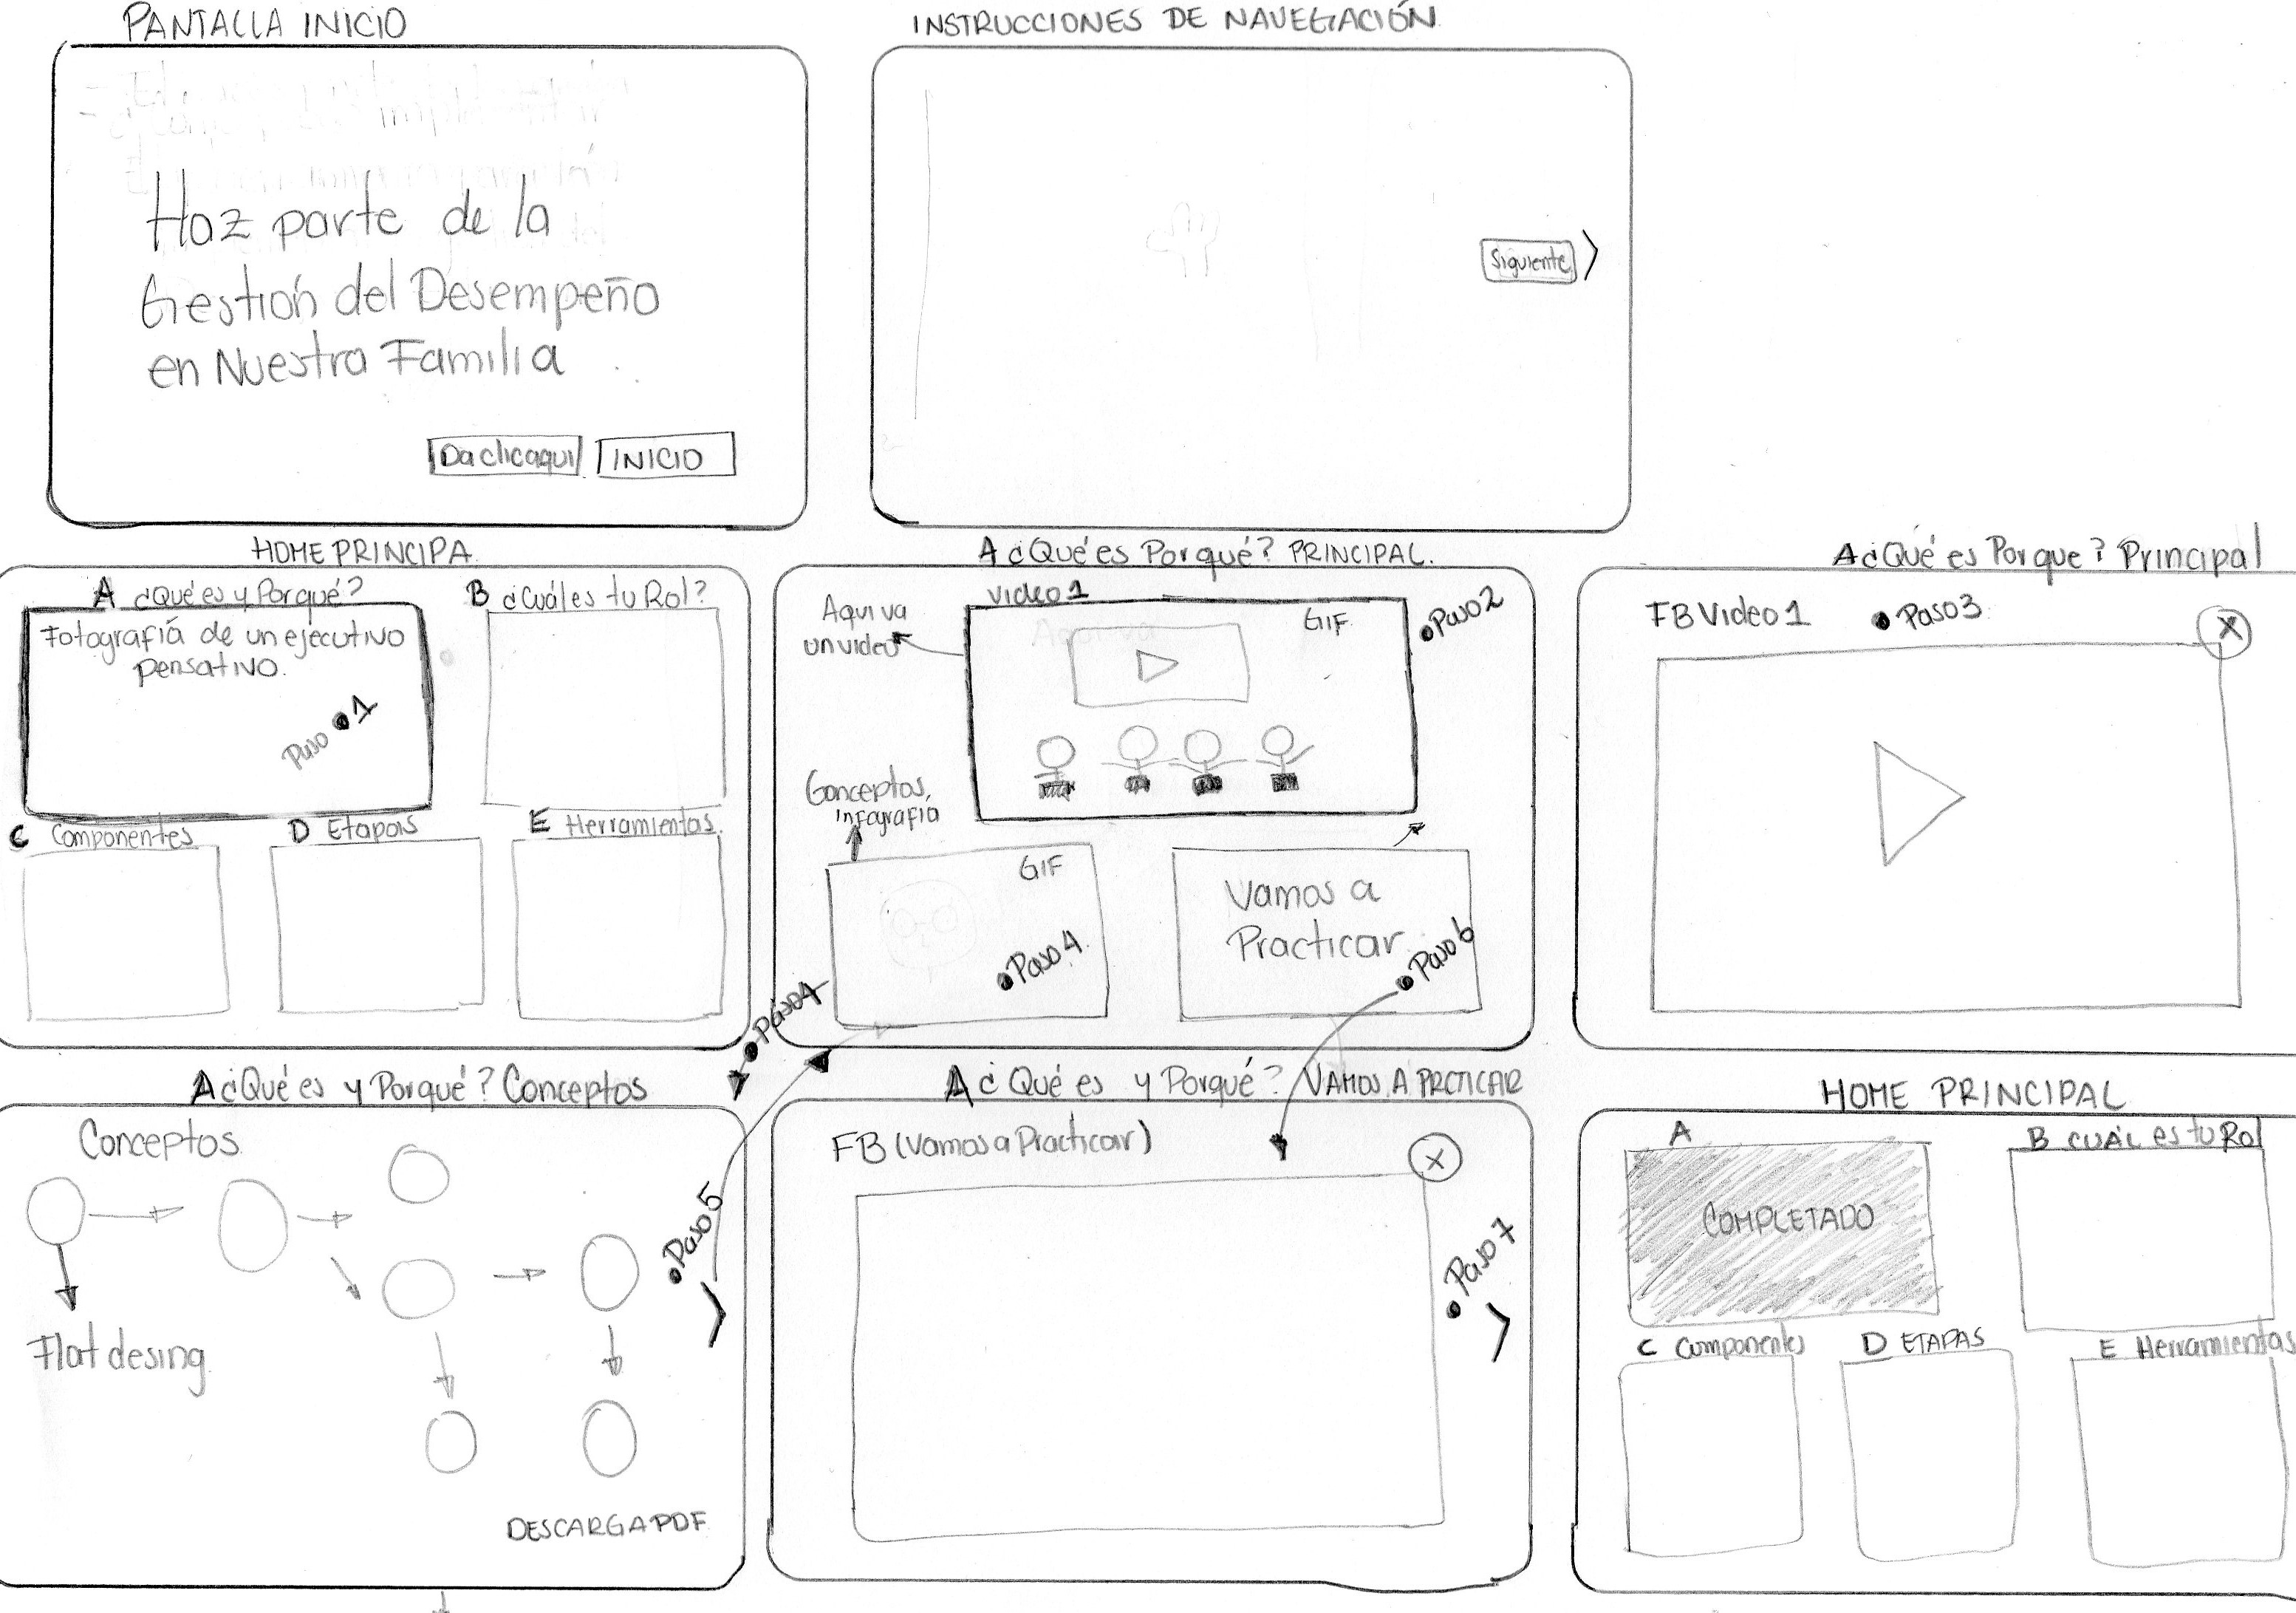 PANTALLA INICIO
Haz parte de la
Gestión del Desempeño
en Nuestra Familia
Da clic aqui
INICIO
INSTRUCCIONES DE NAVEGACIÓN
Siguiente
HOME PRINCIPA
A ¿Qué es y Porqué?
B ¿Cuál es tu Rol?
Fotografiá de un ejecutivo
pensativo.
Paso 1
C Componentes
D Etapas
E Herramientas
A ¿Qué es Porqué? PRINCIPAL.
Aqui va
un video
video 1
GIF
Paso 2
Conceptos,
infografía
GIF
Paso 4
Vamos a
Practicar
Paso 6
A ¿Qué es Porque? Principal
FB Video 1
Paso 3
X
Paso 4
A ¿Qué es y Porqué? Conceptos
Conceptos
Flat desing
Paso 5
DESCARGA PDF
A ¿Qué es y Porqué? VAMOS A PRCTICAR
FB (Vamos a Practicar)
X
Paso 7
HOME PRINCIPAL
A
COMPLETADO
B CUÁL es tu Rol
C Componentes
D ETAPAS
E Herramientas